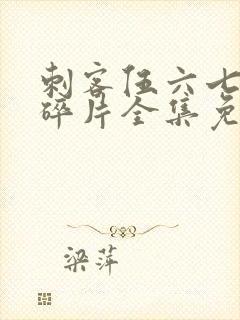 刺客伍六七
碎片全集免
梁萍